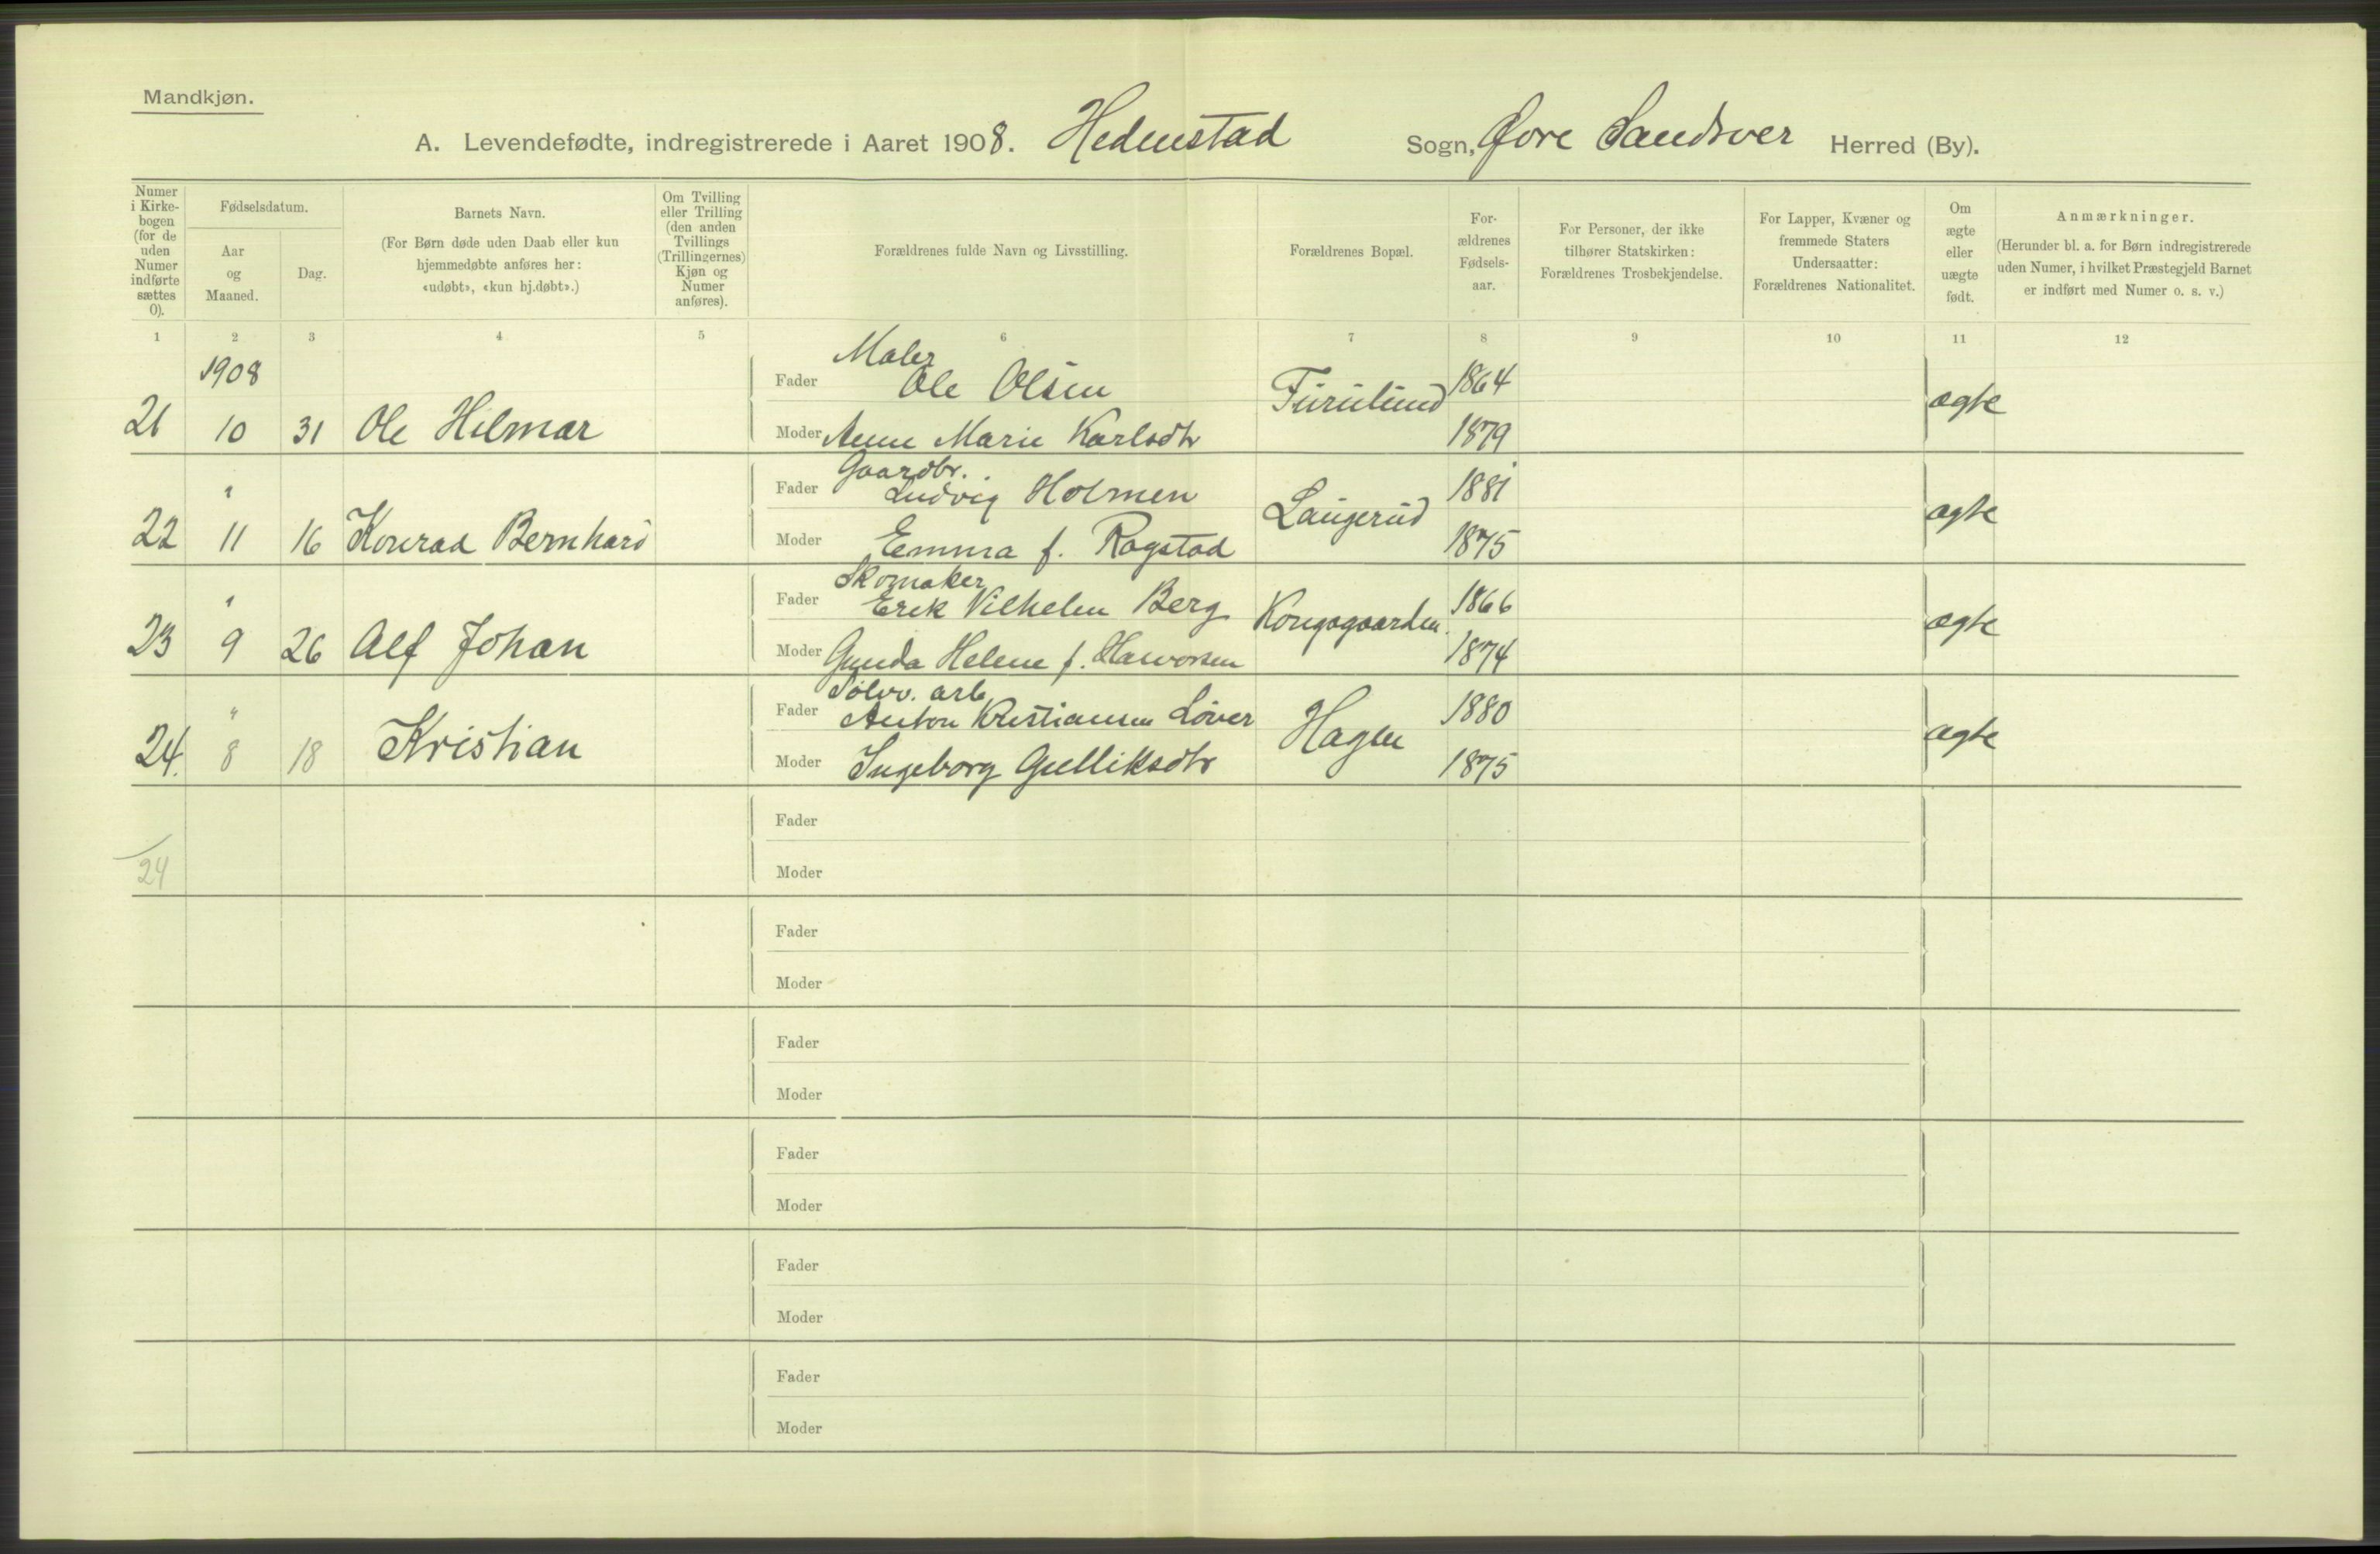 Mandkjøn.
A. Levendefødte, indregistrerede i Aaret 1908. Hedenstad Sogn, Øvre Sandsver Herred (By).
Numer i Kirkebogen (for de uden Numer indførte sættes 0).
Fødselsdatum.
Aar og Maaned.
Dag.
Barnets Navn.
(For Børn døde uden Daab eller kun hjemmedøbte anføres her: «udøbt», «kun hj.døbt».)
Om Tvilling eller Trilling (den anden Tvillings (Trillingernes) Kjøn og Numer anføres).
Forældrenes fulde Navn og Livsstilling.
Forældrenes Bopæl.
For-ældrenes Fødsels-aar.
For Personer, der ikke tilhører Statskirken: Forældrenes Trosbekjendelse.
For Lapper, Kvæner og fremmede Staters Undersaatter: Forældrenes Nationalitet.
Om ægte eller uægte født.
Anmærkninger.
(Herunder bl. a. for Børn indregistrerede uden Numer, i hvilket Præstegjeld Barnet er indført med Numer o. s. v.)
1 2 3 4 5 6 7 8 9 10 11 12
1908
Maler
Fader Ole Olsen Furulund 1864
21 10 31 Ole Hilmar ægte
Moder Anne Marie Karlsdtr 1879
Gaardbr.
" Fader Ludvig Holmen Laugerud 1881
22 11 16 Konrad Bernhard ægte
Moder Emma f. Rogstad 1875
Skomaker
" Fader Erik Vilhelm Berg Kongsgaarden. 1866
23 9 26 Alf Johan ægte
Moder Gunda Helene f. Halvorsen 1874
Sølvv. arb.
" Fader Anton Kristiansen Løver Hagen 1880
24. 8 18 Kristian ægte
Moder Ingeborg Gulliksdtr 1875
Fader
24
Moder
Fader
Moder
Fader
Moder
Fader
Moder
Fader
Moder
Fader
Moder